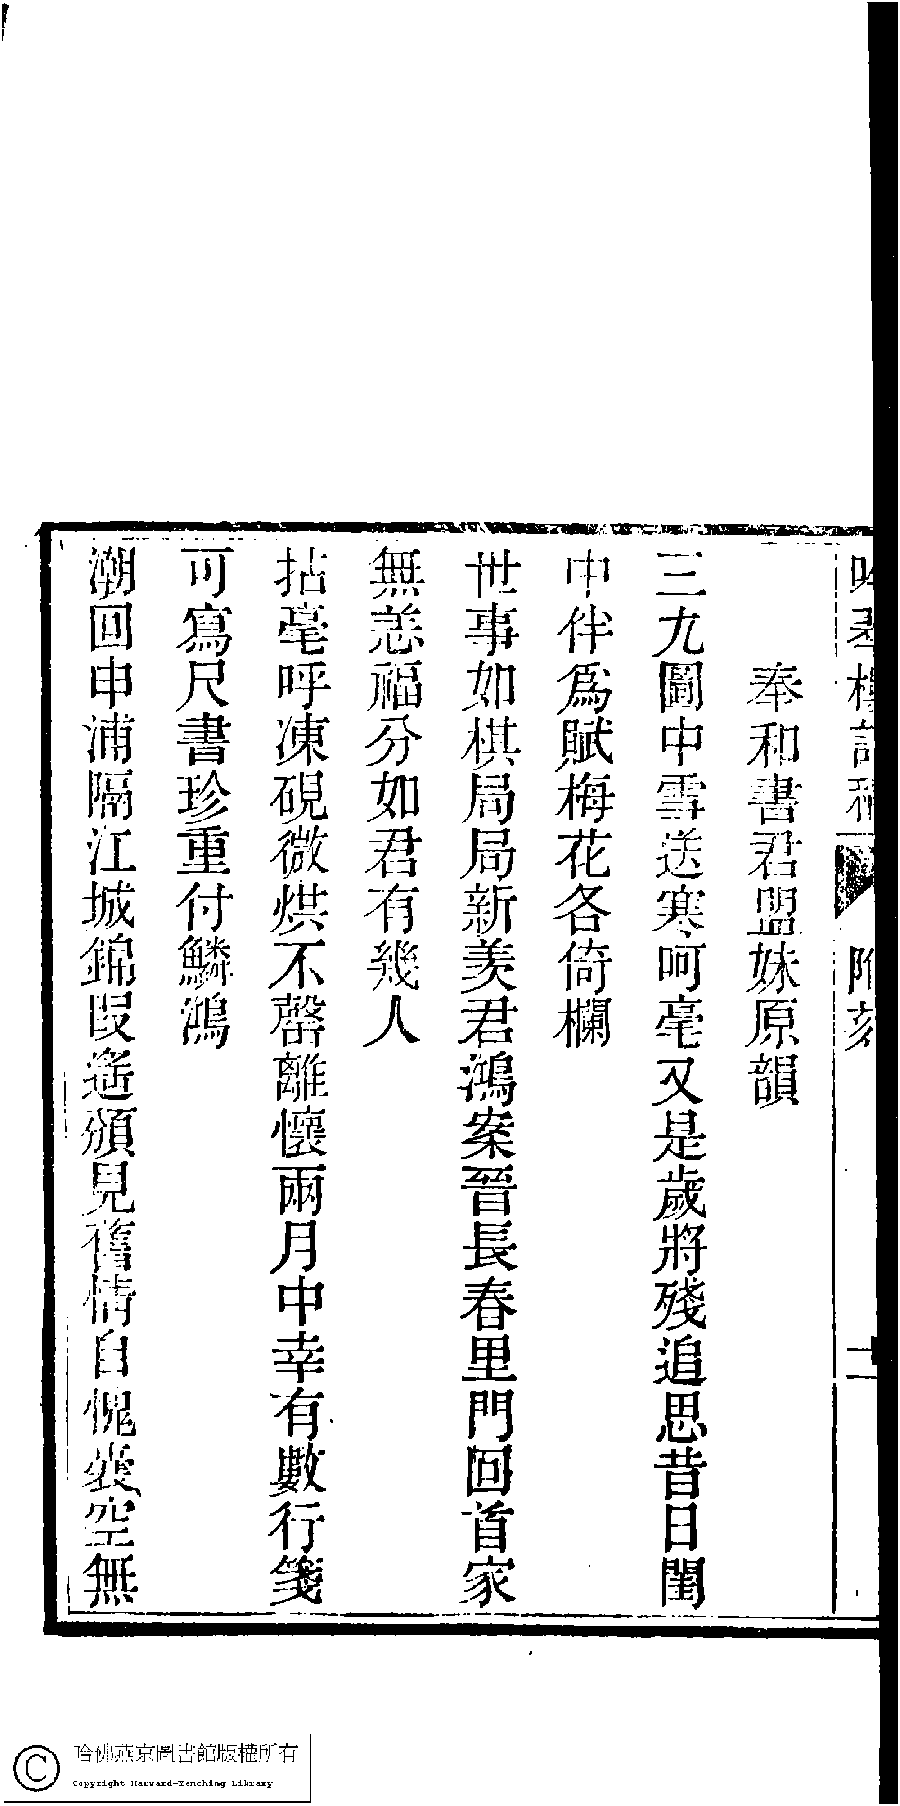 奉和書君盟妹原韻
三九圖中雪送寒呵毫又是歲將殘追思昔日閨
中伴爲賦梅花各倚欄
世事如棋局局新羨君鴻案晉長春里門回首家
無恙福分如君有幾人
拈毫呼凍硯微烘不罄離懷兩月中幸有數行箋
可寫尺書珍重付鱗鴻
潮回申浦隔江城錦段遙頒見舊情自愧奚空無
附刻
哈佛燕京圖書館版權所有
Copyright Harvard-Yenching Library